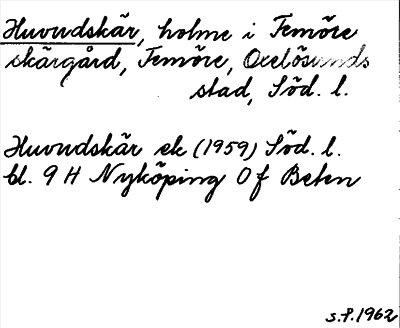 Huvudskär, holme i Femöre
skärgård, Femöre, Oxelösunds
stad, Söd. l.
Huvudskär ek (1959) Söd. l.
bl. 9 H Nyköping 0 f Beten
s.f.1962